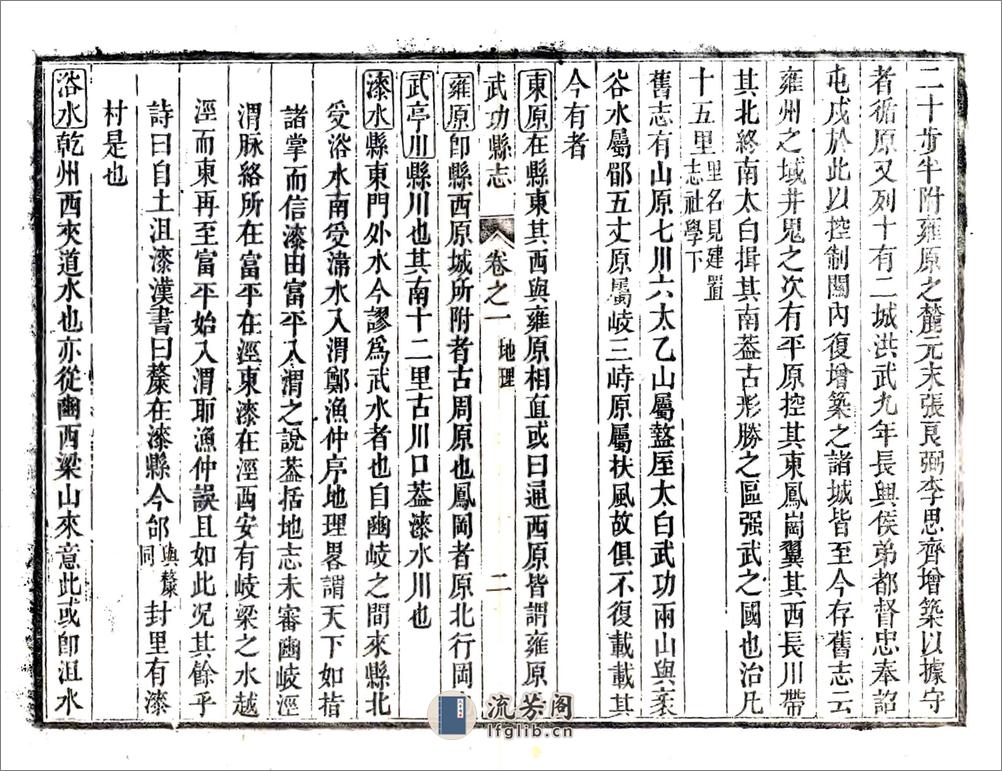 二十步半附雍原之麓元末張良弼李思齊增築以據守
者循原又列十有二城洪武九年長興侯弟都督忠奉詔
屯戍於此以控制關內復增築之諸城皆至今存舊志云
雍州之域井鬼之次有平原控其東鳳崗翼其西長川帶
其北終南太白揖其南葢古形勝之區强武之國也治凡
十五里里名見建置志社學下
舊志有山原七川六太乙山屬盩厔太白武功兩山與褒
谷水屬郿五丈原屬岐三畤原屬扶風故俱不復載載其
今有者
東原在縣東其西與雍原相直或曰通西原皆謂雍原
武功縣志 卷之一 地理 二
雍原卽縣西原城所附者古周原也鳳岡者原北行岡
武亭川縣川也其南十二里古川口葢漆水川也
漆水縣東門外水今謬爲武水者也自豳岐之間來縣北
受浴水南受湋水入渭鄭漁仲序地理畧謂天下如指
諸掌而信漆由富平入渭之說葢括地志未審豳岐涇
渭脉絡所在富平在涇東漆在涇西安有岐梁之水越
涇而東再至富平始入渭耶漁仲誤且如此况其餘乎
詩曰自土沮漆漢書曰斄在漆縣今邰與斄同封里有漆
村是也
浴水乾州西夾道水也亦從豳西梁山來意此或卽沮水
流芳阁
lfglib.cn